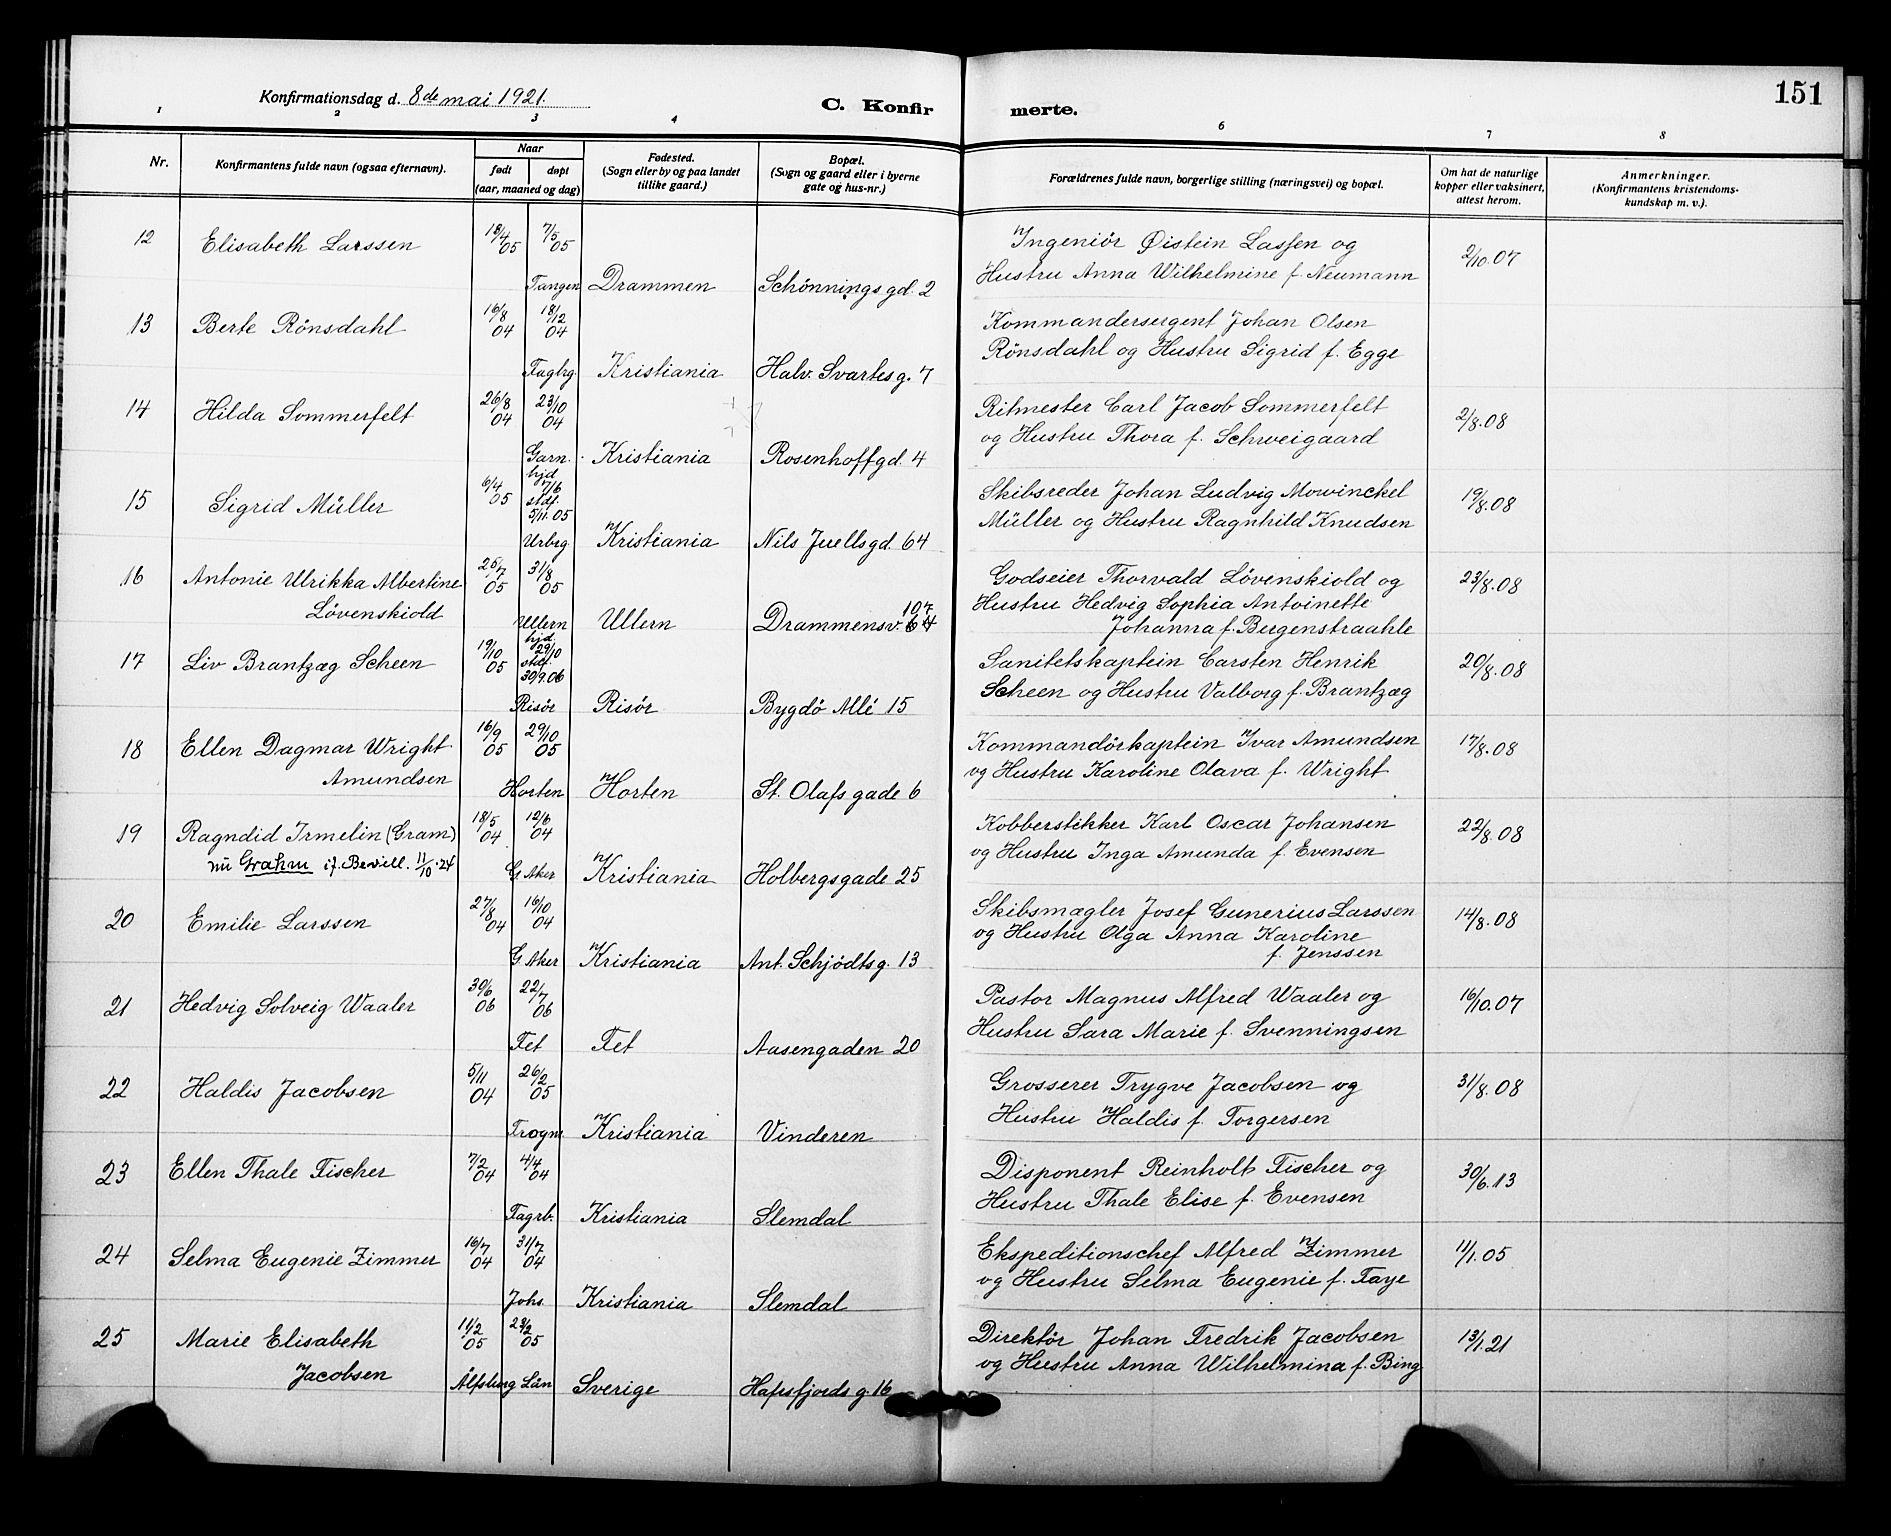 151
Konfirmationsdag d. 8de mai 1921.
C. Konfirmerte.
1 2 3 4 6 7 8
Nr.
Konfirmantens fulde navn (ogsaa efternavn).
Naar
født døpt
(aar, maaned og dag)
Fødested.
(Sogn eller by og paa landet
tillike gaard.)
Bopæl.
(Sogn og gaard eller i byerne
gate og hus-nr.)
Forældrenes fulde navn, borgerlige stilling (næringsvei) og bopæl.
Om hat de naturlige
kopper eller vaksinert,
attest herom.
Anmerkninger.
(Konfirmantens kristendoms-
kundskap m. v.).
12 Elisabeth Larssen 18/4 05 7/5 05 Ingeniör Øistein Lassen og 2/10.07
Hustru Anna Wilhelmine f. Neumann
Tangen Drammen Schönnings gd. 2
13 Berte Rönsdahl 16/8 04 18/12 04 Kommandersergent Johan Olsen
Rönsdahl og Hustru Sigrid f. Egge
Fagbrg. Kristiania Halv. Svartes g. 7
14 Hilda Sommerfelt 26/8 04 23/10 04 Ritmester Carl Jacob Sommerfelt 2/8.08
og Hustru Thora f. Schweigaard
Garn. Kristiania Rosenhoffgd. 4
15 Sigrid Müller 6/4 05 hjd. 7/6 stdf. 5/11.05 Skibsreder Johan Ludvig Mowinckel 19/8.08
Müller og Hustru Ragnhild Knudsen
Urbrg. Kristiania Nils Juellsgd. 64
16 Antonie Ulrikka Albertine 25/7 05 31/8 05 Godseier Thorvald Lövenskiold og 23/8.08
Lövenskiold Hustru Hedvig Sophia Antoinette
Johanna f. Bergenstraahle
107
Ullern Ullern Drammensv. 64
17 Liv Brantzæg Scheen 19/10 05 hjd. 29/10 stdf. 30/9.06 Sanitetskaptein Carsten Henrik 20/8.08
Scheen og Hustru Valborg f. Brantzæg
Risör Risör Bygdö Allé 15
18 Ellen Dagmar Wright 16/9 05 29/10 05 Kommandörkaptein Ivar Amundsen 17/8.08
Amundsen og Hustru Karoline Olava f. Wright
Horten Horten St. Olafs gade 6
19 Ragndid Irmelin (Gram) 18/5 04 12/6 04 Kobberstikker Karl Oscar Johansen 22/8.08
nu Grahm if. Bevill. 11/10.24 og Hustru Inga Amunda f. Evensen
G. Aker Kristiania Holbergsgade 25
20 Emilie Larssen 27/8 04 16/10 04 Skibsmægler Josef Gunerius Larssen 14/8.08
og Hustru Olga Anna Karoline
f. Jenssen
G. Aker Kristiania Ant. Schjödtsg. 13
21 Hedvig Solveig Waaler 30/6 06 22/7 06 Pastor Magnus Alfred Waaler og 16/10.07
Hustru Sara Marie f. Svenningsen
Fet Fet Aasengaden 20
22 Haldis Jacobsen 5/11 04 26/2 05 Grosserer Trygve Jacobsen og 31/8.08
Hustru Haldis f. Torgersen
Frogn. Kristiania Vinderen
23 Ellen Thale Fischer 7/2 04 4/4 04 Disponent Reinholt Fischer og 30/6.13
Hustru Thale Elise f. Evensen
Fagrb. Kristiania Slemdal
24 Selma Eugenie Zimmer 16/7 04 31/7 04 Ekspeditionschef Alfred Zimmer 11/1.05
og Hustru Selma Eugenie f. Faye
Johs. Kristiania Slemdal
25 Marie Elisabeth 11/2 05 23/2 05 Direktör Johan Fredrik Jacobsen 13/1.21
Jacobsen og Hustru Anna Wilhelmina f. Bing
Älfsborg Län Sverige Hafrsfjords g. 16